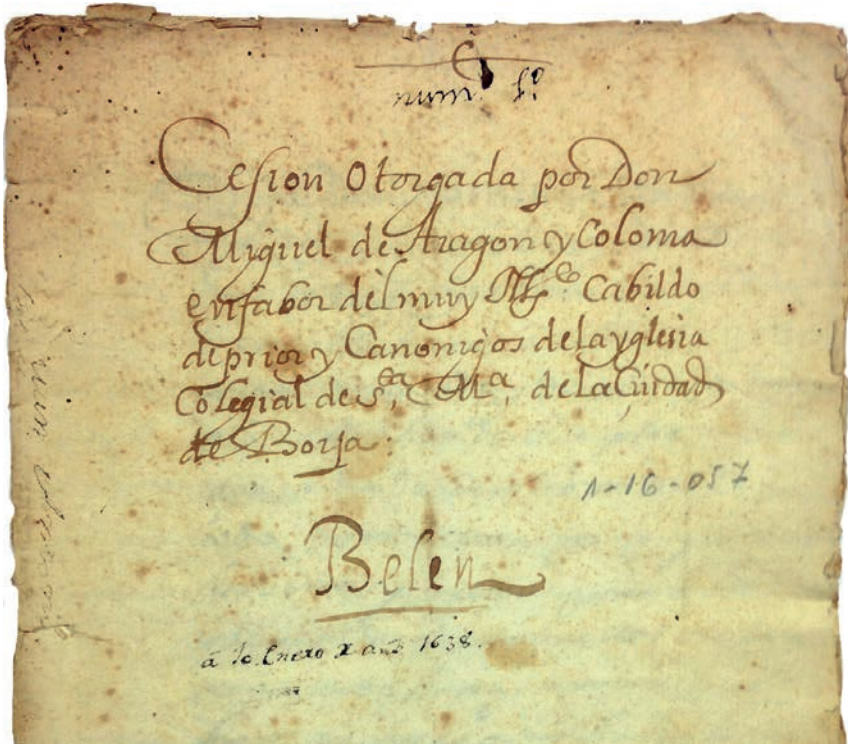 num.º 1.º
Cesion Otorgada por Don
Miguel de Aragon y Coloma
en fabor del muy Ill.e Cabildo
de prior y Canonigos de la yglesia
Colegial de S.ta M.a de la Ciudad
de Borja.
1-16-057
Belen
à 10 Enero año 1638.